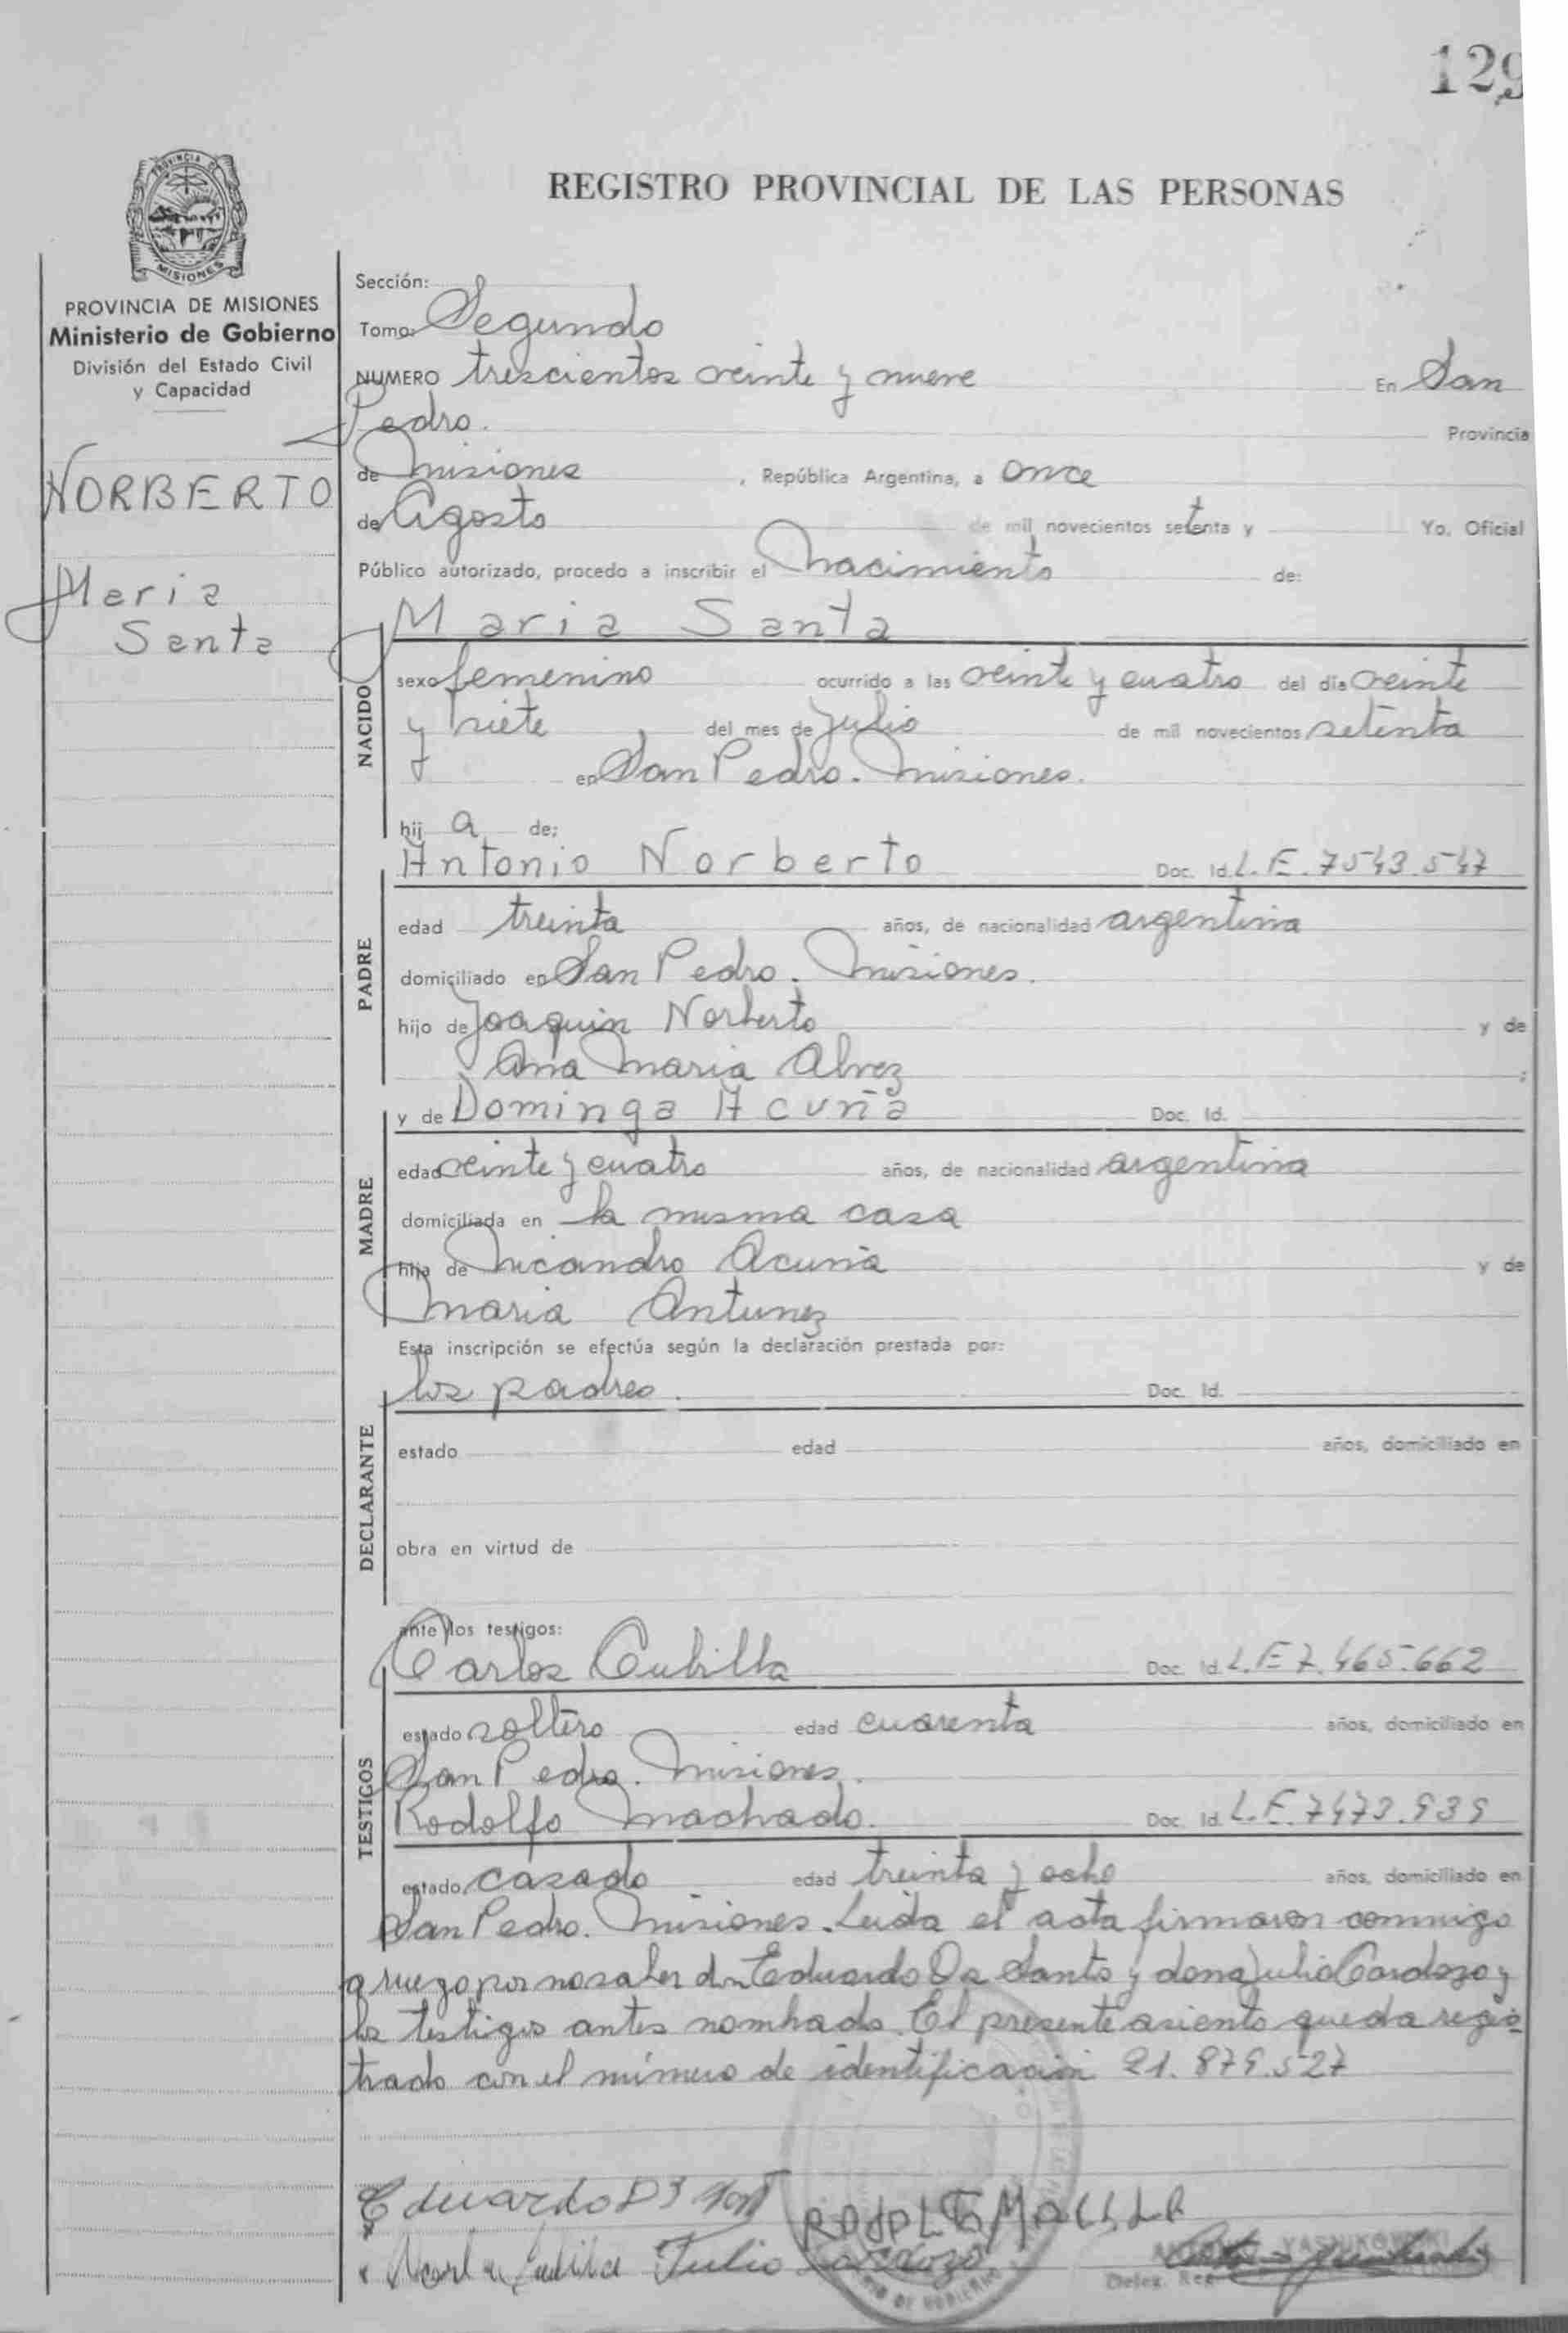 129
PROVINCIA DE MISIONES
REGISTRO PROVINCIAL DE LAS PERSONAS
PROVINCIA DE MISIONES
Ministerio de Gobierno
División del Estado Civil
y Capacidad
NORBERTO
Maria
Santa
Sección:
Tomo: Segundo
NUMERO trescientos veinte y nueve En San
Pedro. Provincia
de Misiones , República Argentina, a once
de Agosto de mil novecientos setenta y Yo, Oficial
Público autorizado, procedo a inscribir el Nacimiento de:
Maria Santa
NACIDO
sexo femenino ocurrido a las veinte y cuatro del día veinte
y siete del mes de Julio de mil novecientos setenta
y en San Pedro. Misiones.
hij a de:
Antonio Norberto Doc. Id. L.E. 7543.547
PADRE
edad treinta años, de nacionalidad argentina
domiciliado en San Pedro. Misiones.
hijo de Joaquin Norberto y de
Ana Maria Alvez ;
y de Dominga Acuña Doc. Id.
MADRE
edad veinte y cuatro años, de nacionalidad argentina
domiciliada en la misma casa
hija de Nicandro Acuña y de
Maria Antunez
Esta inscripción se efectúa según la declaración prestada por:
los padres. Doc. Id.
DECLARANTE
estado edad años, domiciliado en
obra en virtud de
ante los testigos:
Carlos Cubilla Doc. Id. L.E 7.465.662
TESTIGOS
estado soltero edad cuarenta años, domiciliado en
San Pedro. Misiones.
Rodolfo Machado. Doc. Id. L.E. 7473.939
estado casado edad treinta y ocho años, domiciliado en
San Pedro. Misiones. Leida el acta firmaron conmigo
a ruego por no saber don Eduardo Da Santo y dona Julio Cardozo y
los testigos antes nombrado. El presente asiento queda regis
trado con el número de identificación 21.879.527
Eduardo
Julio Cardozo
YASNIKOWSKI